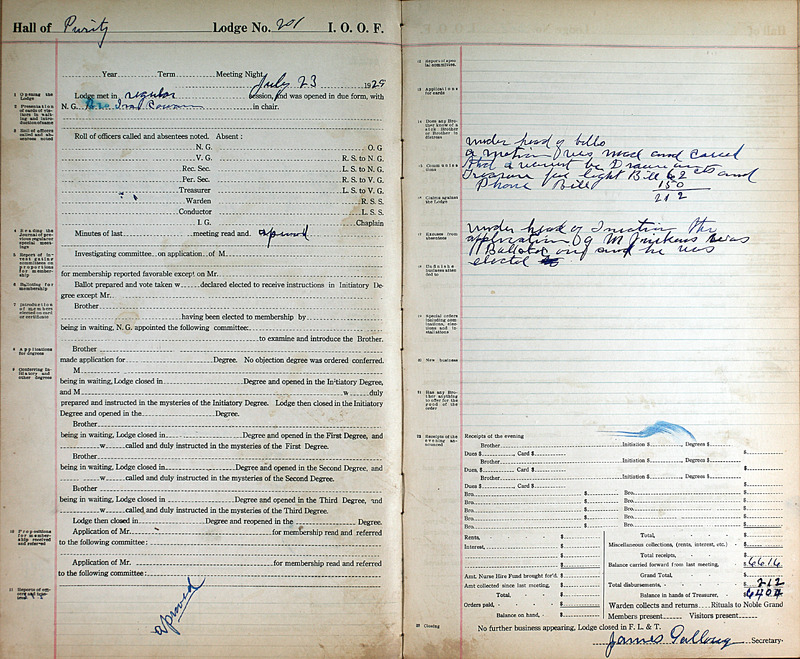 Hall of Purity Lodge No. 201 I. O. O. F.
Year Term Meeting Night, July 23 1929
1 Opening the Lodge
Lodge met in regular session, and was opened in due form, with
N. G. Bro in chair.
2 Presentation of cards of visitors in waiting and introduction of same
3 Roll of officers called and absentees noted
Roll of officers called and absentees noted. Absent:
N. G. O. G
V. G. R. S. to N. G.
Rec. Sec. L. S. to N. G.
Per. Sec. R. S. to V. G.
Treasurer L. S. to V. G.
Warden R. S. S.
Conductor L. S. S.
I. G. Chaplain
4 Reading the Journal of previous regular or special meetings
Minutes of last meeting read and aproved
5 Reports of Investigating committees on propositions for membership
Investigating committee on application of M
for membership reported favorable except on Mr.
6 Balloting for membership
Ballot prepared and vote taken w declared elected to receive instructions in Initiatory De-
gree except Mr.
7 Introduction of members elected on card or certificate
Brother
having been elected to membership by
being in waiting, N. G. appointed the following committee:
to examine and introduce the Brother.
8 Applications for degrees
Brother
made application for Degree. No objection degree was ordered conferred.
9 Conferring Initiatory and other degrees
M
being in waiting, Lodge closed in Degree and opened in the Initiatory Degree,
and M w duly
prepared and instructed in the mysteries of the Initiatory Degree. Lodge then closed in the Initiatory
Degree and opened in the Degree.
Brother
being in waiting, Lodge closed in Degree and opened in the First Degree, and
w called and duly instructed in the mysteries of the First Degree.
Brother
being in waiting, Lodge closed in Degree and opened in the Second Degree, and
w called and duly instructed in the mysteries of the Second Degree.
Brother
being in waiting, Lodge closed in Degree and opened in the Third Degree, and
w called and duly instructed in the mysteries of the Third Degree.
Lodge then closed in Degree and reopened in the Degree.
10 Propositions for membership received and referred
Application of Mr. for membership read and referred
to the following committee:
Application of Mr. for membership read and referred
to the following committee:
11 Reports of
aproved
12 Report of special committee.
13 Applications for cards
14 Does any Brother know of a sick Brother or Brother in distress
under head of bills
a motion was mad and caried
15 Communications
And a warent be Drawn on
Tresure for light Bill 62 cts and
Phone Bill 150
212
16 Claims against the Lodge
17 Excuses from absentees
under head of the
application of M was
Balloted on and he was
elected
18 Unfinished business attended to
19 Special orders including communications, elections and installations
20 New business
21 Has any Brother anything to offer for the good of the order
22 Receipts of the evening announced
Receipts of the evening
Brother Initiation $ Degrees $
Dues $ Card $ $
Brother Initiation $ Degrees $
Dues $ Card $ $
Brother Initiation $ Degrees $
Dues $ Card $ $
Bro. $ Bro. $
Bro. $ Bro. $
Bro. $ Bro. $
Bro. $ Bro. $
Bro. $ Bro. $
Rents, $ Total, $
Interest, $ Miscellaneous collections, (rents, interest, etc.) $
$ Total receipts, $
Balance carried forward from last meeting, $ 6616
Amt. Nurse Hire Fund brought for'd. $ Grand Total, $
Amt collected since last meeting, $ Total disbursements, $ 212
Total, $ Balance in hands of Treasurer, $ 6404
Orders paid, $ Warden collects and returns Rituals to Noble Grand
Balance on hand, $ Members present Visitors present
23 Closing
No further business appearing, Lodge closed in F. L. & T.
James Secretary.